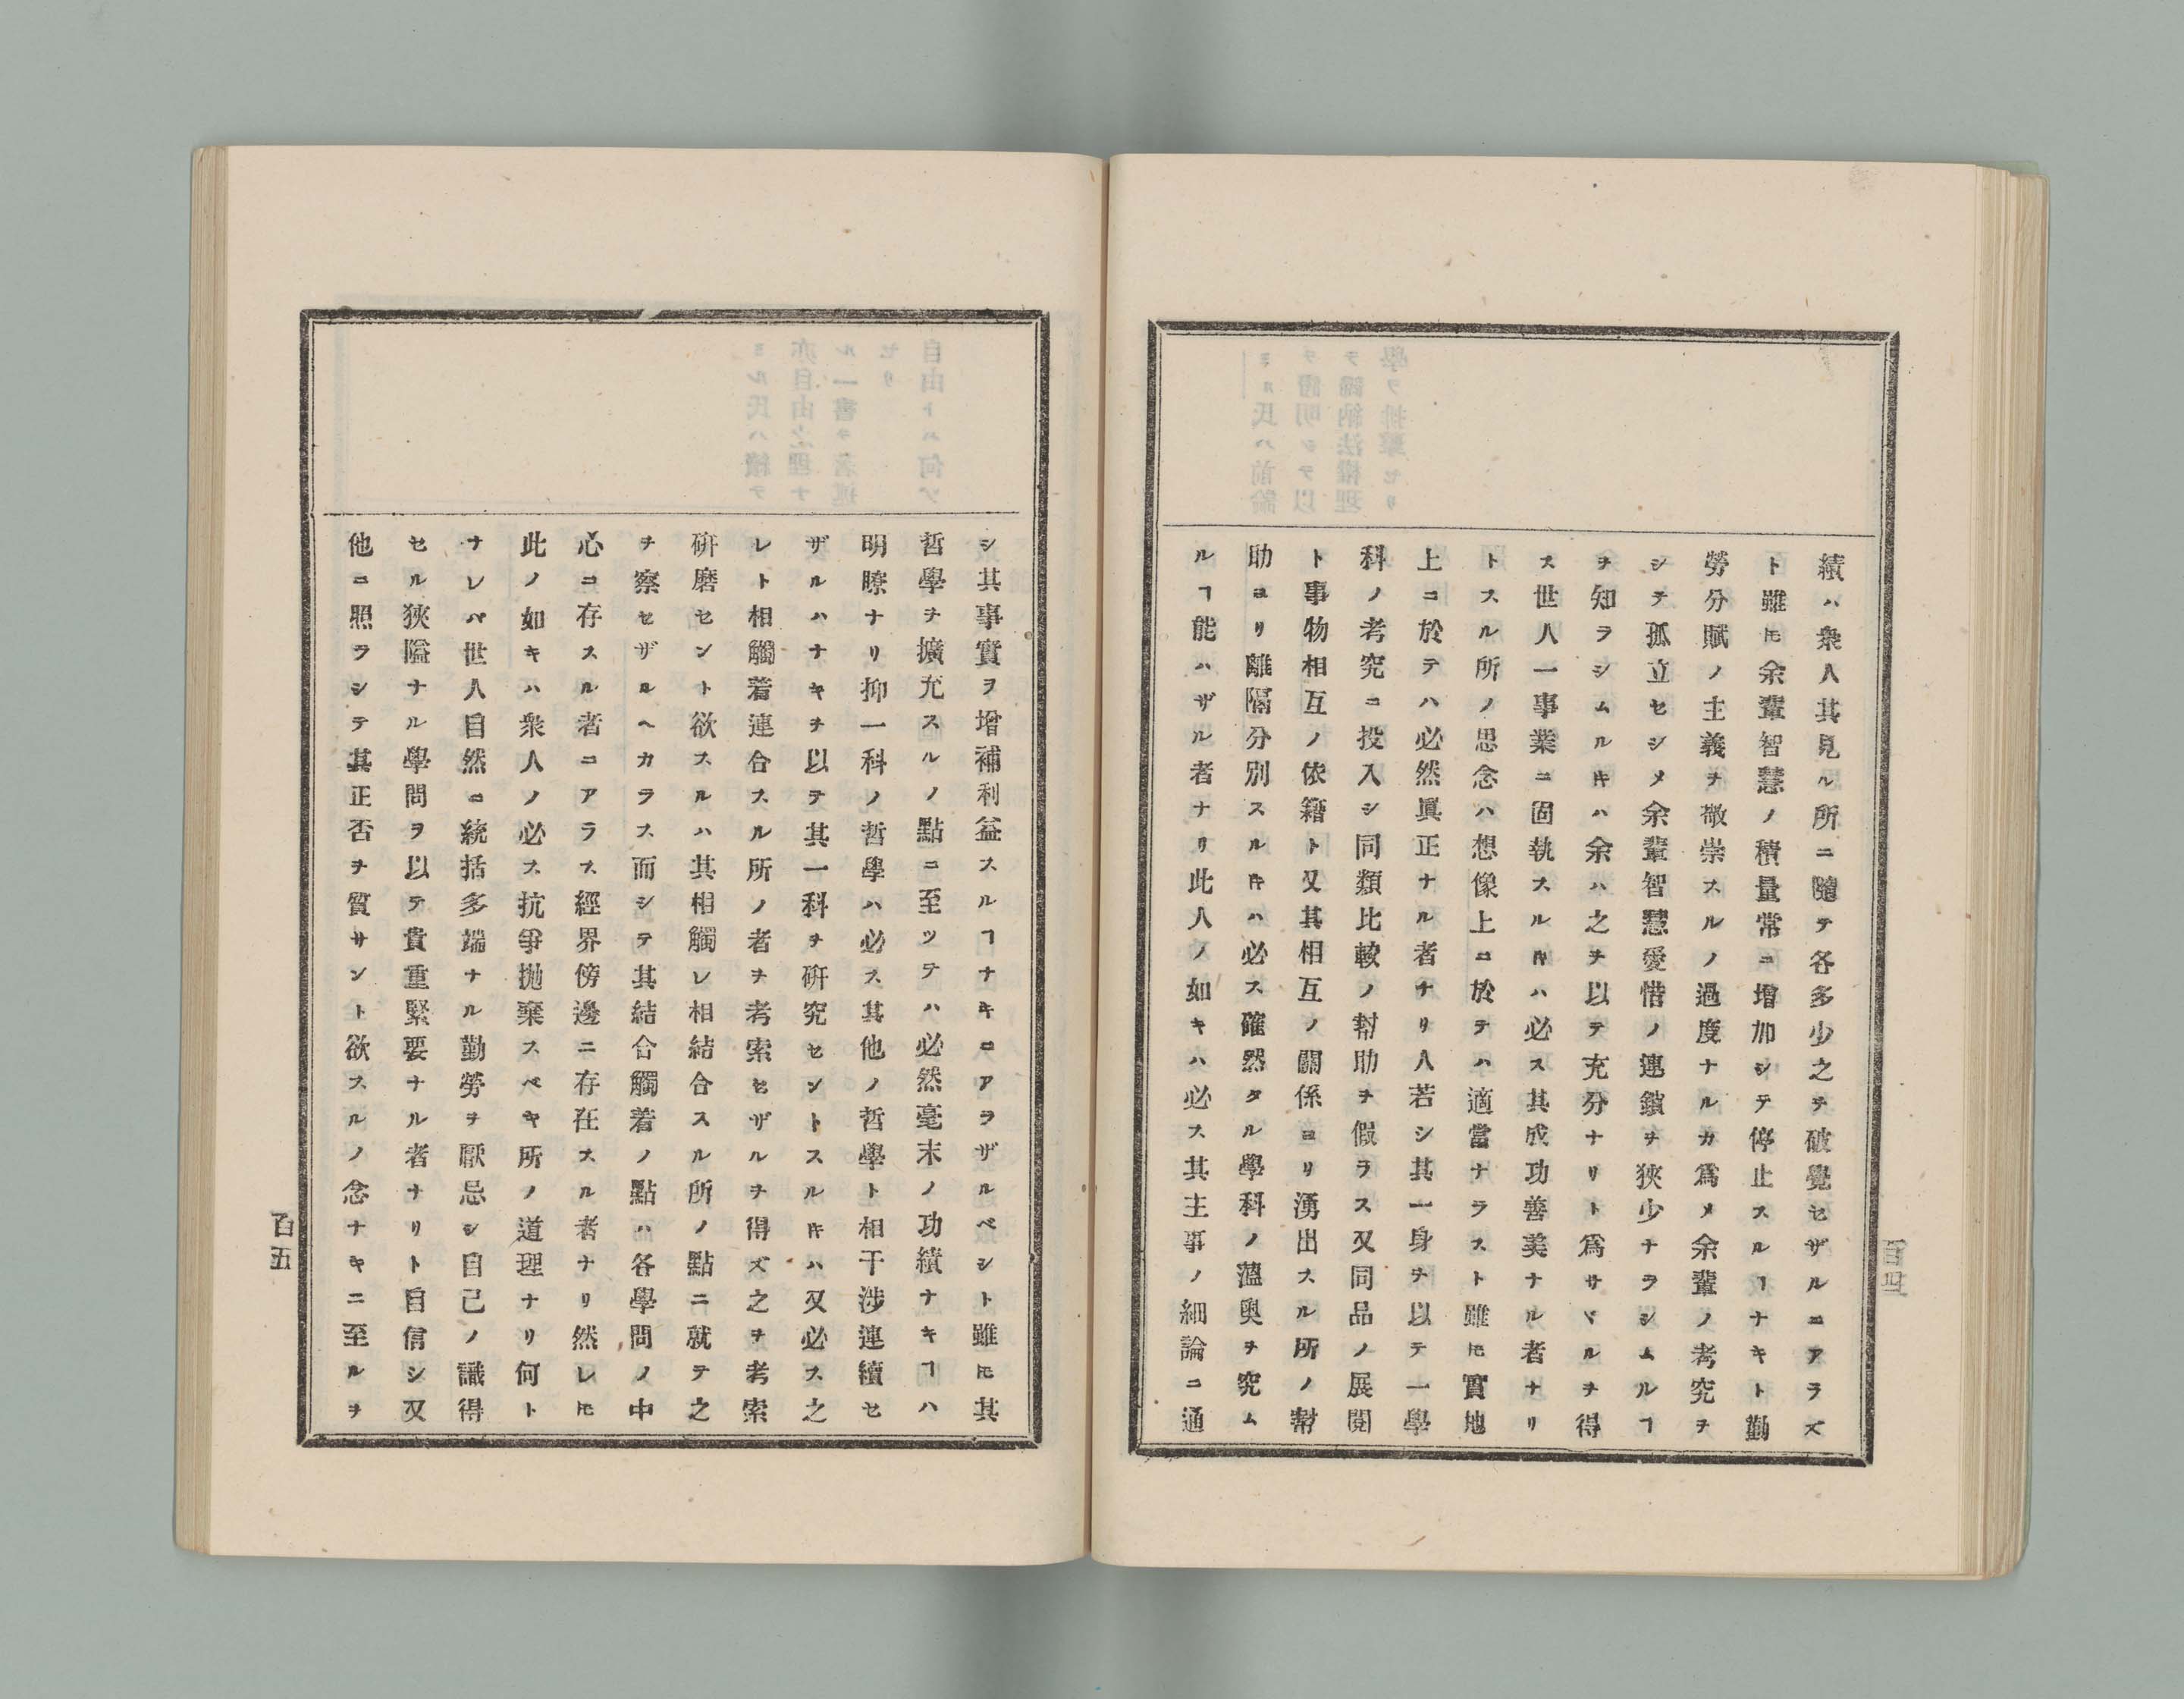 績ハ衆人其見ル所ニ隨テ各多少之ヲ破覺セザルニアラズ
ト雖𪜈余輩智慧ノ積量常ニ增加シテ停止スルヿナキト勤
勞分賦ノ主義ヲ敬崇スルノ過度ナルカ爲メ余輩ノ考究ヲ
シテ孤立セシメ余輩智慧愛惜ノ連鎖ヲ狹少ナラシムルヿ
ヲ知ラシムルキハ余ハ之ヲ以テ充分ナリト爲サヾルヲ得
ス世人一事業ニ固執スルキハ必ス其成功善美ナル者ナリ
トスル所ノ思念ハ想像上ニ於テハ適當ナラスト雖𪜈實地
上ニ於テハ必然眞正ナル者ナリ人若シ其一身ヲ以テ一學
科ノ考究ニ投入シ同類比較ノ幇助ヲ假ラス又同品ノ展閱
ト事物相互ノ依籍ト又其相互ノ關係ヨリ湧出スル所ノ幇
助ヨリ離隔分別スルキハ必ス確然タル學科ノ薀奧ヲ究ム
ルヿ能ハザル者ナリ此人ノ如キハ必ス其主事ノ細論ニ通
百四
シ其事實ヲ增補利益スルヿナキニアラザルベシト雖𪜈其
哲學ヲ擴充スルノ點ニ至ツテハ必然毫末ノ功績ナキヿハ
明瞭ナリ抑一科ノ哲學ハ必ス其他ノ哲學ト相干涉連續セ
ザルハナキヲ以テ其一科ヲ硏究セントスルキハ又必ス之
レト相觸着連合スル所ノ者ヲ考索セザルヲ得ズ之ヲ考索
硏磨セント欲スルハ其相觸レ相結合スル所ノ點ニ就テ之
ヲ察セザルヘカラス而シテ其結合觸着ノ點ハ各學問ノ中
心ニ存スル者ニアラス經界傍邊ニ存在スル者ナリ然レ𪜈
此ノ如キハ衆人ノ必ス抗爭抛棄スベキ所ノ道理ナリ何ト
ナレバ世人自然ニ統括多端ナル勤勞ヲ厭忌シ自己ノ識得
セル狹隘ナル學問ヲ以テ貴重緊要ナル者ナリト自信シ又
他ニ照ラシテ其正否ヲ質サント欲スルノ念ナキニ至ルヲ
百五